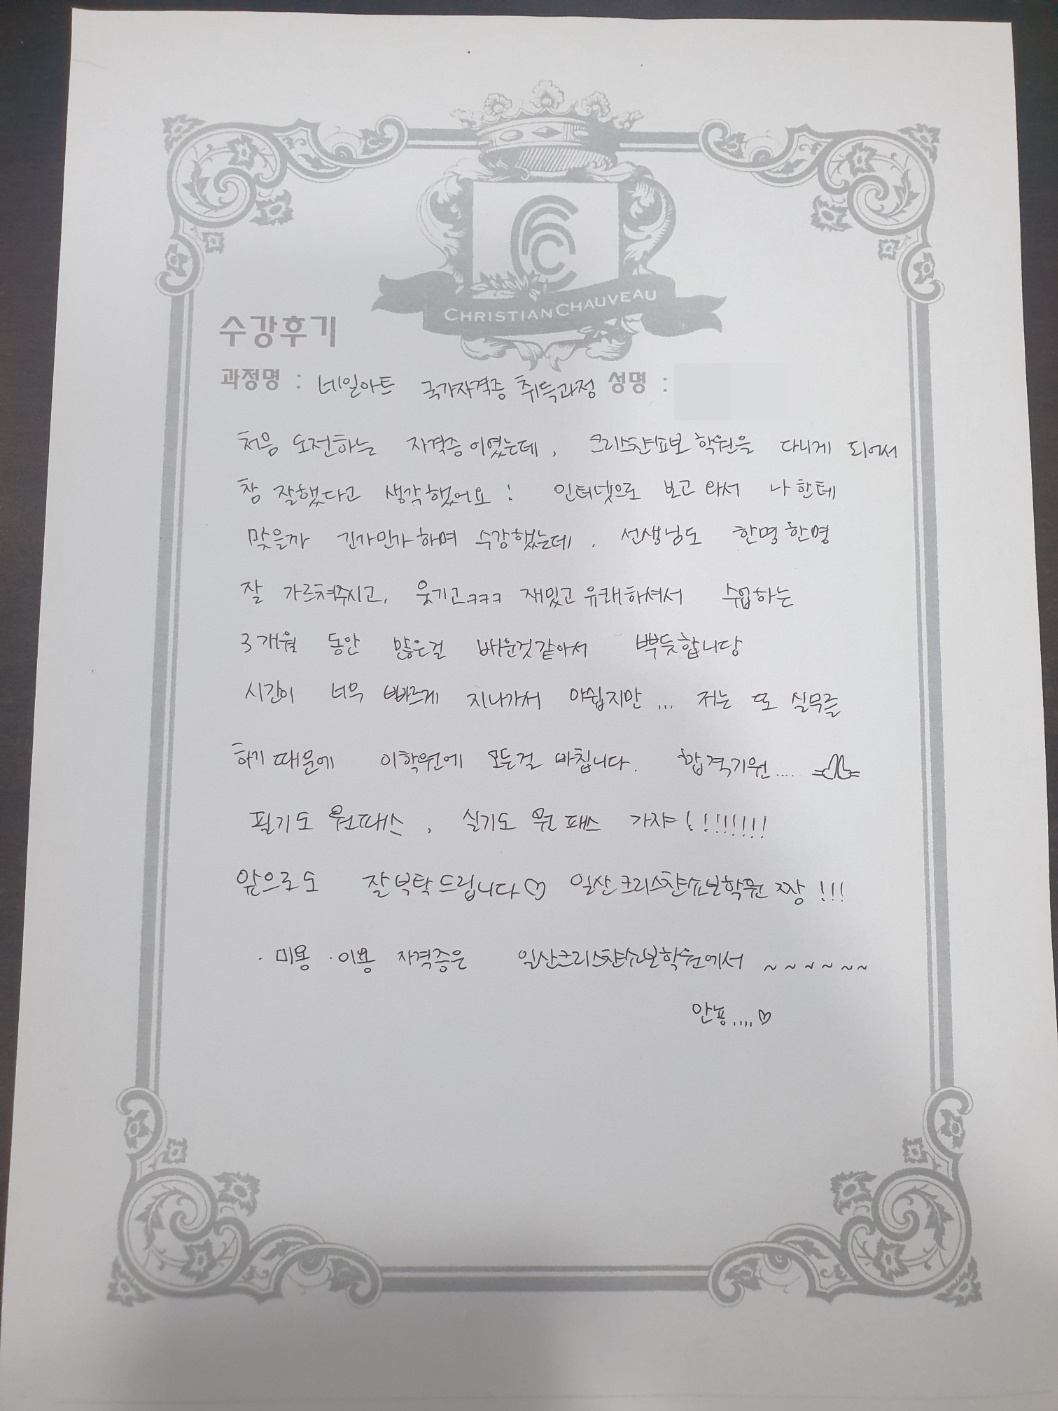 CHRISTIAN CHAUVEAU
수강후기
과정명 : 네일아트 국가자격증 취득과정 성명 :
처음 도전하는 자격증이였는데, 크리스챤쇼보 학원을 다니게 되어서
참 잘했다고 생각했어요! 인터넷으로 보고 와서 나한테
맞을까 긴가민가하며 수강했는데, 선생님도 한명한명
잘 가르쳐주시고, 웃기고ㅋㅋㅋ 재밌고 유쾌하셔서 수업하는
3개월 동안 많은걸 배운것같아서 뿌듯합니당
시간이 너무 빠르게 지나가서 아쉽지만... 저는 또 실무를
하기 때문에 이학원에 모든걸 바칩니다. 합격기원....
필기도 원패스, 실기도 원패스 가자!!!!!!!!
앞으로도 잘부탁드립니다♡ 일산크리스챤쇼보학원 짱!!!
·미용·이용 자격증은 일산크리스챤쇼보학원에서 ~~~~~~
안뇽....♡